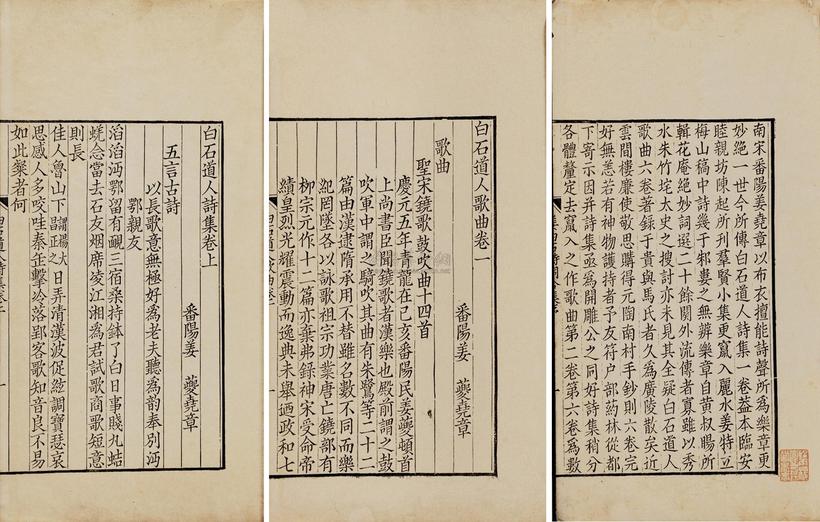 南宋番陽姜堯章以布衣擅能詩聲所為樂章更
妙絕一世今所傳白石道人詩集一卷葢本臨安
睦親坊陳起所刊羣賢小集更竄入麗水姜特立
梅山稿中詩幾于邾婁之無辨樂章自黃叔暘所
輯花庵絕妙詞選二十餘闋外流傳者寡雖以秀
水朱竹垞太史之搜討亦未見其全疑白石道人
歌曲六卷著錄于貴與馬氏者久為廣陵散矣近
雲間樓廉使敬思購得元陶南村手鈔則六卷完
好無恙若有神物護持者予友符户部葯林從都
下寄示因并詩集亟為開雕公之同好詩集稍分
各體釐定去竄入之作歌曲第二卷第六卷為數
白石道人歌曲卷一
番陽姜 夔堯章
歌曲
聖宋鐃歌鼓吹曲十四首
慶元五年青龍在己亥番陽民姜夔頓首
上尚書臣聞鐃歌者漢樂也殿前謂之鼓
吹軍中謂之騎吹其曲有朱鷺等二十二
篇由漢逮隋承用不替雖名數不同而樂
紀罔墜各以詠歌祖宗功業唐亡鐃部有
柳宗元作十二篇亦棄弗錄神宋受命帝
績皇烈光耀震動而逸典未舉迺政和七
白石道人詩集卷上
番陽姜 夔堯章
五言古詩
以長歌意無極好為老夫聽為韵奉別沔
鄂親友
滔滔沔鄂留有靦三宿桒持鉢了白日事賤九蛣
蜣念當去石友烟席凌江湘為君試歌商歌短意
則長
佳人魯山下謂楊大昌正之日弄清漢波促絃調寶瑟哀
思感人多咬哇秦缶擊冷落郢客歌知音良不易
如此粲者何